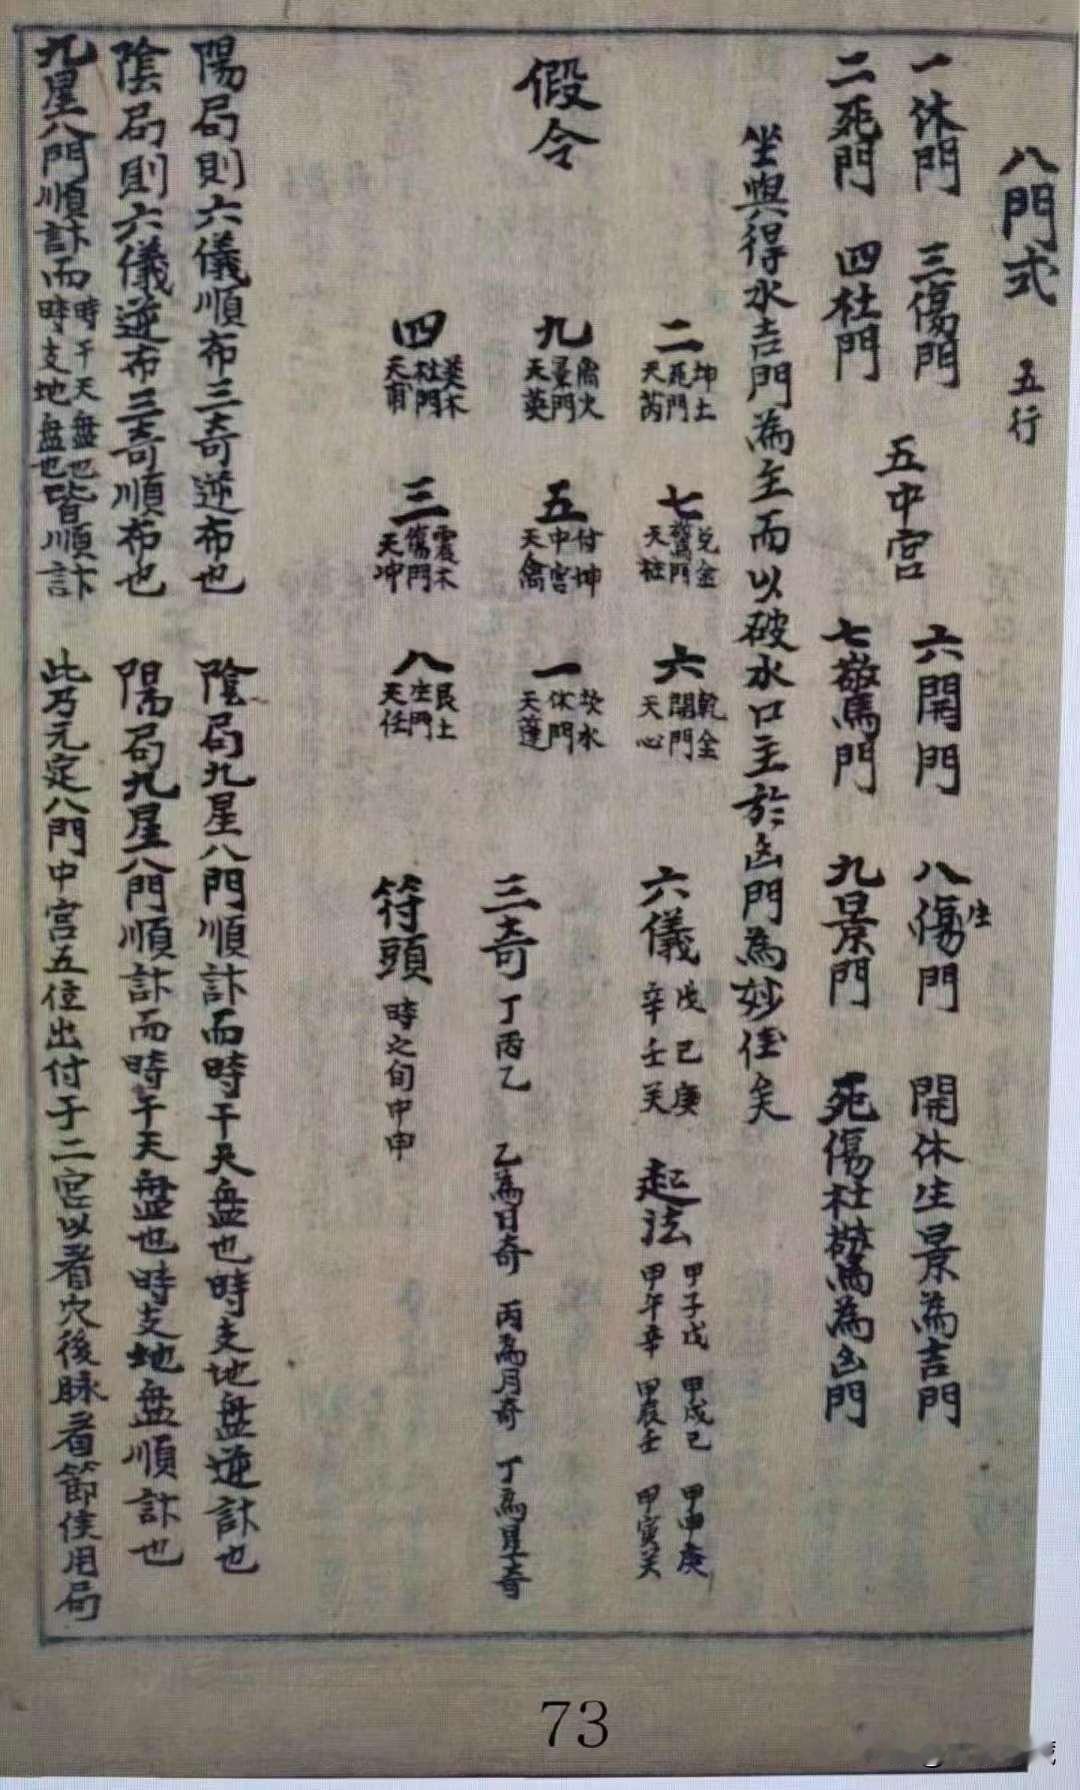 八門式 五行
一休門 三傷門 五中宮 六開門 八傷門 生 開休生景為吉門
二死門 四杜門 七驚門 九景門 死傷杜驚為凶門
坐與得水吉門為主而以破水口主於凶門為妙佳矣
假令
四 巽木 杜門 天甫
九 离火 景門 天英
二 坤土 死門 天芮
三 震木 傷門 天冲
五 付坤 中宮 天禽
七 兌金 驚門 天柱
八 艮土 生門 天任
一 坎水 休門 天蓬
六 乾金 開門 天心
六儀 戊己庚 辛壬癸 起法 甲子戊 甲戌己 甲申庚 甲午辛 甲辰壬 甲寅癸
三奇 丁丙乙 乙為日奇 丙為月奇 丁為星奇
符頭 時之旬中甲
陽局則六儀順布三奇逆布也 陰局九星八門順計而時干天盤也時支地盤逆計也
陰局則六儀逆布三奇順布也 陽局九星八門順計而時干天盤也時支地盤順計也
九星八門順計而 時干天盤也 時支地盤也 皆順計 此乃元定八門中宮五位出付于二宮以看穴後脉看節候用局
73